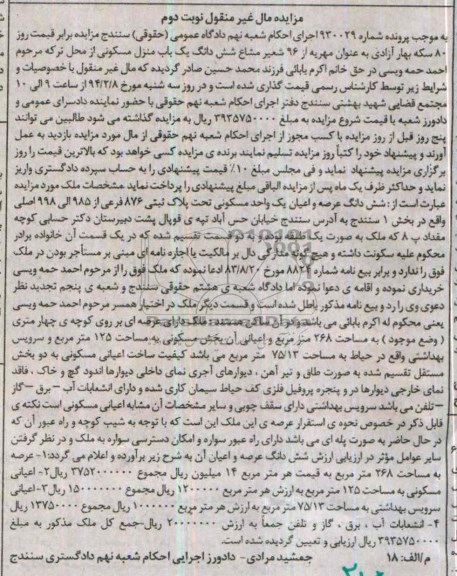 مزایده مال غیر منقول نوبت دوم
به موجب پرونده شماره ۹۳۰۰۲۹ اجرای احکام شعبه نهم دادگاه عمومی (حقوقی) سنندج مزایده برابر قیمت روز
۸۰ سکه بهار آزادی به عنوان مهریه از ۹۶ شعیر مشاع شش دانگ یک باب منزل مسکونی از محل ترکه مرحوم
احمد حمه ویسی در حق خانم اکرم بابائی فرزند محمد حسین صادر گردیده که مال غیر منقول با خصوصیات و
شرایط زیر توسط کارشناس رسمی قیمت گذاری شده است و در روز سه شنبه مورخ ۹۴/۲/۸ از ساعت ۹ الی ۱۰
مجتمع قضایی شهید بهشتی سنندج دفتر اجرای احکام شعبه نهم حقوقی با حضور نماینده دادسرای عمومی و
دادورز شعبه با قیمت شروع مزایده به مبلغ ۳۹۳۵۷۵۰۰۰۰ ریال به مزایده گذاشته می شود طالبین می توانند
پنج روز قبل از روز مزایده با کسب مجوز از اجرای احکام شعبه نهم حقوقی از مال مورد مزایده بازدید به عمل
آورند و پیشنهاد خود را کتباً روز مزایده تسلیم نمایند برنده ی مزایده کسی خواهد بود که بالاترین قیمت را روز
برگزاری مزایده پیشنهاد نماید و فی مجلس مبلغ ۱۰٪ قیمت پیشنهادی را به حساب سپرده دادگستری واریز
نماید و حداکثر ظرف یک ماه پس از مزایده الباقی مبلغ پیشنهادی را پرداخت نماید مشخصات ملک مورد مزایده
عبارت است از : شش دانگ عرصه و اعیان یک واحد مسکونی تحت پلاک ثبتی ۸۷۶ فرعی از ۹۸۵ الی ۹۹۸ اصلی
واقع در بخش ۱ سنندج به آدرس سنندج خیابان حس آباد تپه ی قوپال پشت دبیرستان دکتر حسابی کوچه
مقداد پ ۸ که ملک به صورت یک طبقه بوده و به دو قسمت تقسیم شده که در یک قسمت آن خانواده برادر
محکوم علیه سکونت داشته و هیچ گونه مدارکی دال بر مالکیت یا اجاره نامه ای مبنی بر مستأجر بودن در ملک
فوق را ندارد و برابر بیع نامه شماره ۸۸۲۴ مورخ ۸۳/۸/۲۰ ادعا نموده که ملک فوق را از مرحوم احمد حمه ویسی
خریداری نموده و اقامه ی دعوا نموده اما دادگاه شعبه ی هشتم حقوقی سنندج و شعبه ی پنجم تجدید نظر
دعوی وی را رد و بیع نامه مذکور باطل شده است و قسمت دیگر ملک در اختیار همسر مرحوم احمد حمه ویسی
یعنی محکوم له اکرم بابائی می باشد و در آن ساکن هستند ملک دارای عرصه ای بر روی کوچه ی چهار متری
( وضع موجود ) به مساحت ۲۶۸ متر مربع و اعیانی آن بخش مسکونی به مساحت ۱۲۵ متر مربع و سرویس
بهداشتی واقع در حیاط به مساحت ۷۵/۱۳ متر مربع می باشد کیفیت ساخت اعیانی مسکونی به دو بخش
مستقل تقسیم شده به صورت طاق و تیر آهن ، دیوارهای آجری نمای داخلی دیوارها اندود گچ و خاک ، فاقد
نمای خارجی دیوارها در و پنجره پروفیل فلزی کف حیاط سیمان کاری شده و دارای انشعابات آب – برق – گاز
– تلفن می باشد سرویس بهداشتی دارای سقف چوبی و سایر مشخصات آن مشابه اعیانی مسکونی است نکته ی
قابل ذکر در خصوص نحوه ی استقرار عرصه ی این ملک این است که با توجه به شیب کوچه و راه عبور آن که
در حال حاضر به صورت پله ای می باشد دارای راه عبور سواره و امکان دسترسی سواره به ملک و در نظر گرفتن
سایر عوامل مؤثر در ارزیابی ارزش شش دانگ عرصه و اعیان آن به شرح زیر برآورده و اعلام می گردد:۱- عرصه
به مساحت ۲۶۸ متر مربع به قیمت هر متر مربع ۱۴ میلیون ریال مجموع ۳۷۵۲۰۰۰۰۰۰ ریال۲- اعیانی
مسکونی به مساحت ۱۲۵ متر مربع به ارزش هر متر مربع ۱۲۰۰۰۰۰ ریال مجموع ۱۵۰۰۰۰۰۰۰ ریال۳-اعیانی
سرویس بهداشتی به مساحت ۷۵/۱۳ متر مربع به ارزش هر متر مربع ۱۰۰۰۰۰۰ ریال مجموع ۱۳۷۵۰۰۰۰ ریال
۴- انشعابات آب ، برق ، گاز و تلفن جمعاً به ارزش ۲۰۰۰۰۰۰۰ ریال-جمع کل ملک مذکور به مبلغ
۳۹۳۵۷۵۰۰۰۰ ریال ارزیابی و تعیین گردیده شده است.
م/الف: ۱۸ جمشید مرادی- دادورز اجرایی احکام شعبه نهم دادگستری سنندج